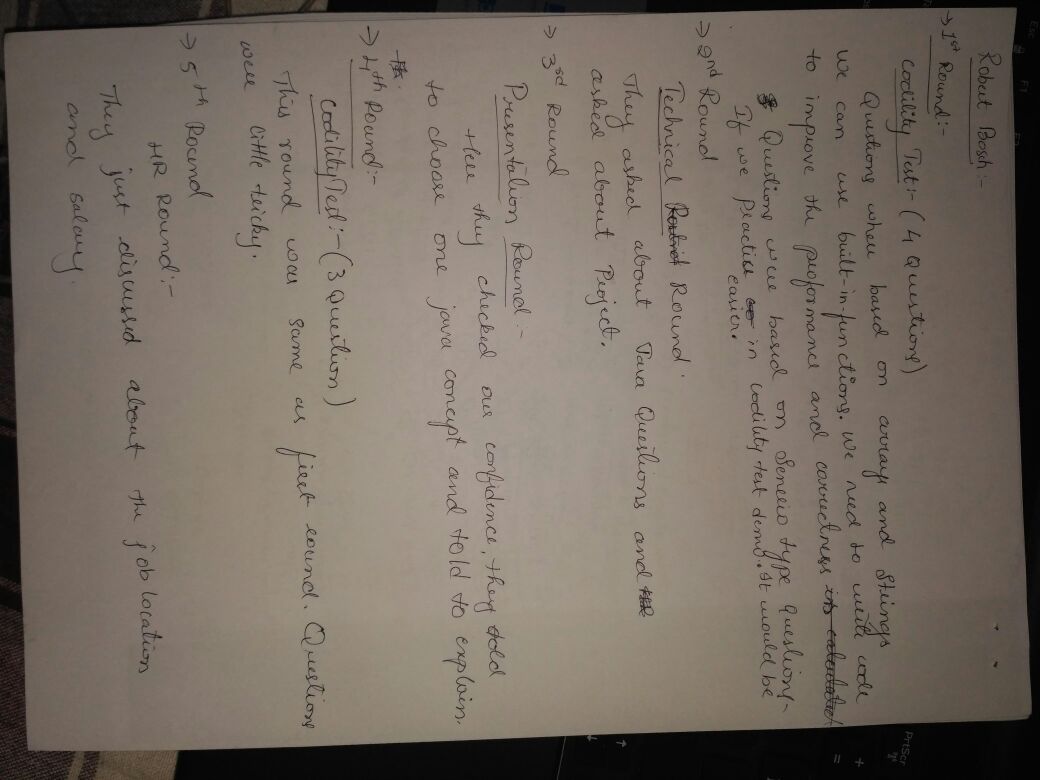 Robert Bosch:-
→ 1st Round:-
Codility Test:- ( 4 Questions)
Questions where based on arrays and Strings
We can use built-in-functions. We need to write code
to improve the proformance and correctness is calculated
Questions were based on Senerio type Questions-
If we practise in codility test demo. It would be
easier.
→ 2nd Round
Technical Round Round
They asked about Java Questions and HR
asked about Project.
→ 3rd Round
Presentation Round:-
Here they checked our confidence, they told
to choose one java concept and told to explain.
→ 4th Round:-
Codility Test:- (3 Question)
This round was same as first round. Questions
were little tricky.
→ 5th Round
HR Round:-
They just discussed about the job location
and salary.
Esc
F1
F2
PrtScr
+
=
↑
↓